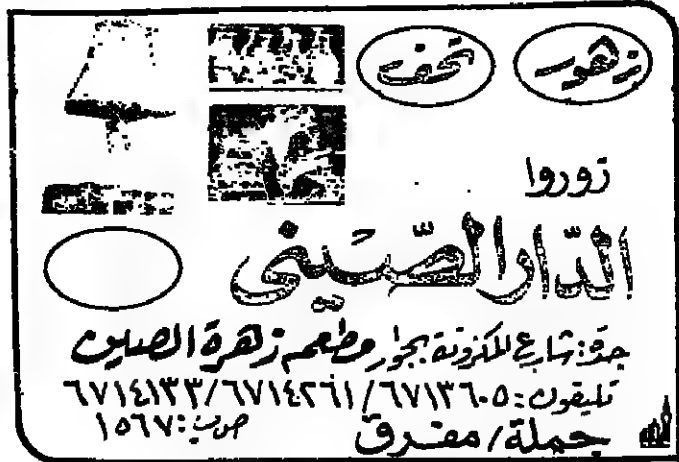 زهور تحف
زوروا
الدار الصّيني
جدة: شارع المكرونة بجوار مطعم زهرة الصين
تليفون: ٦٧١٣٦٠٥/٦٧١٤٢٦١/٦٧١٤١٣٣
جملة/مفرق ص.ب: ١٥٦٧